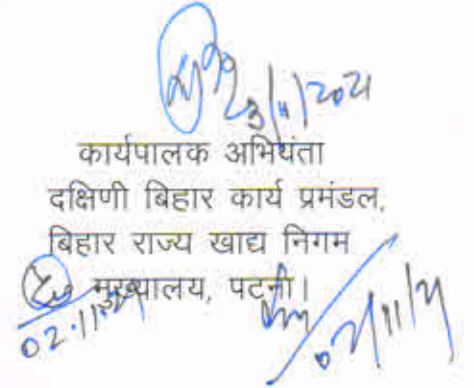 3/11/2021
कार्यपालक अभियंता
दक्षिणी बिहार कार्य प्रमंडल,
बिहार राज्य खाद्य निगम
मुख्यालय, पटना।
02.11.21
02/11/21